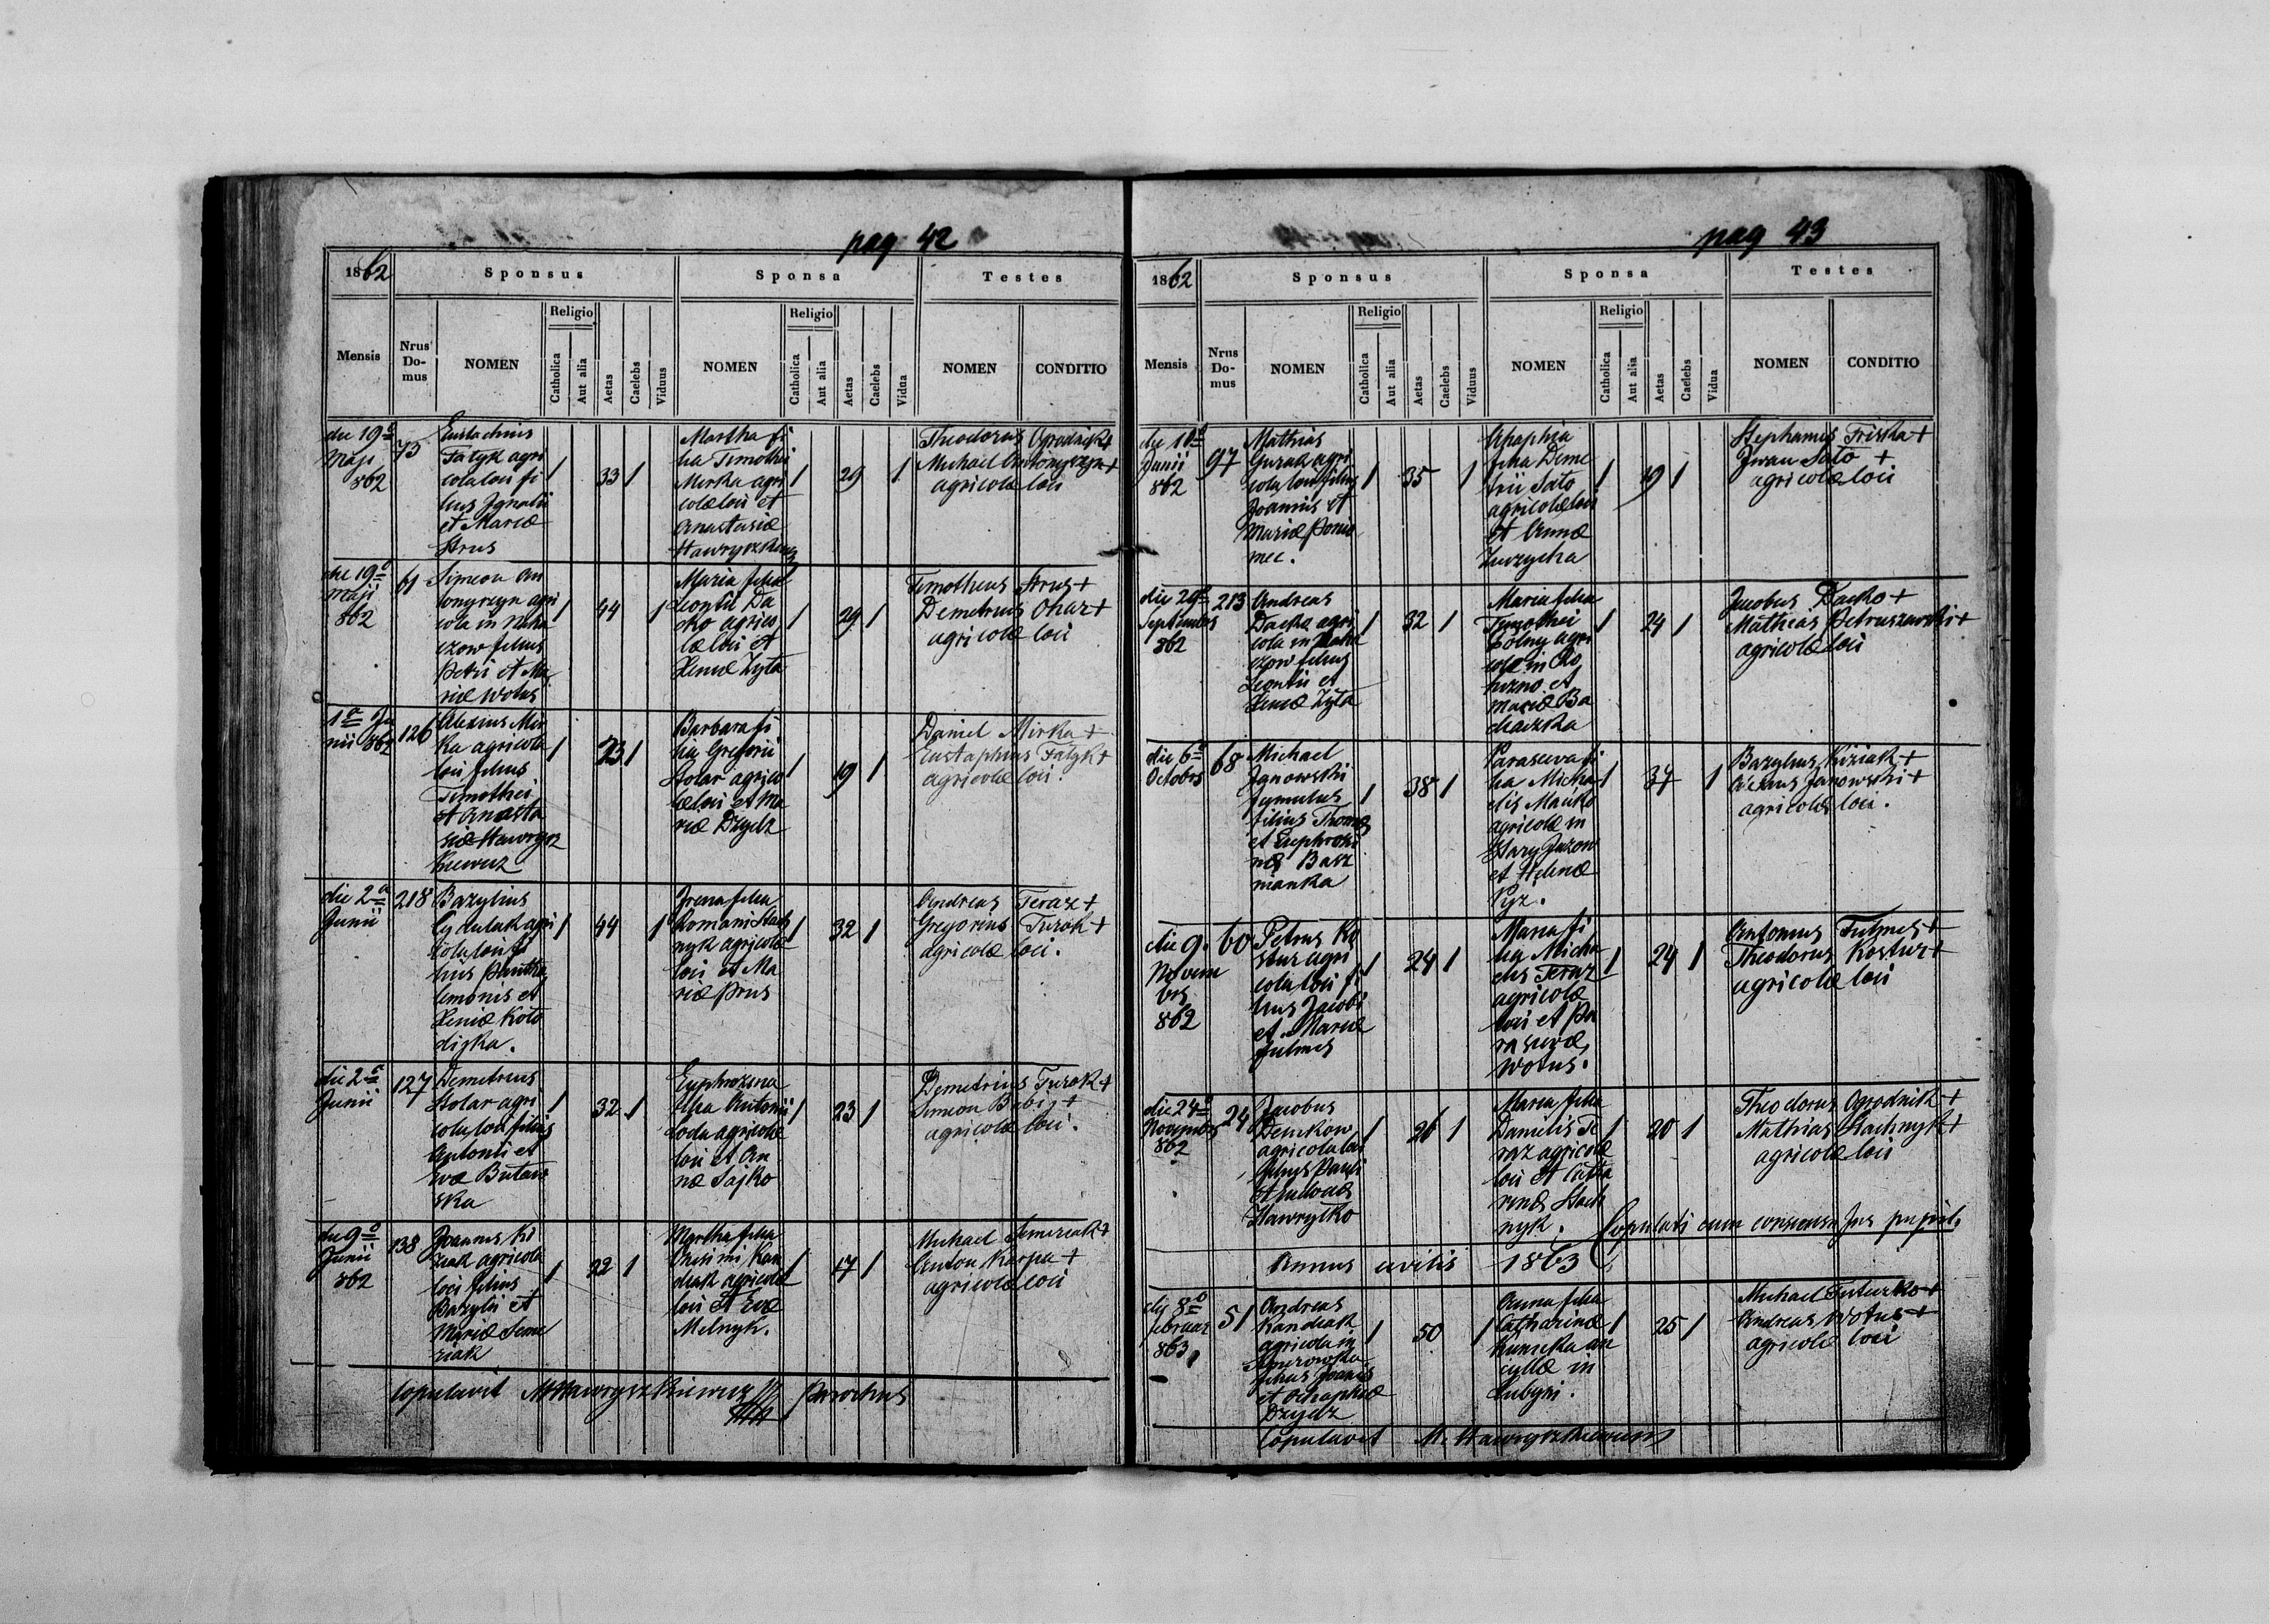 pag 42
1862
Sponsus
Sponsa
Testes
Mensis
Nrus Do-mus
NOMEN
Religio
Catholica
Aut alia
Aetas
Caelebs
Viduus
NOMEN
Religio
Catholica
Aut alia
Aetas
Caelebs
Vidua
NOMEN
CONDITIO
die 19ª
Maji
862
75
Eustachius
Fatyk agri
cola loci fi
lius Ignatii
et Mariæ
Strus
1
33
1
Martha fi
lia Timothei
Mirka agri
colæ loci et
Anastasiæ
1
29
1
Theodorus Ogrodnik+
Michael Antonyczyn+
agricolæ loci
die 19ª
Maji
862
61
Simeon An
tonyczyn agri
cola in
czow filius
Petri et Ma
riæ Wotus
1
44
1
Maria filia
Leontii Da
cko agrico
læ loci et
Xeniæ Zyta
1
29
1
Timotheus Strus+
Demetrius Ohar+
agricolæ loci
1ª Ju
nii 862
126
Alexius Mir
ka agricola
loci filius
Timothei
et Anasta
siæ Hawrysz
kiewicz
1
23
1
Barbara fi
lia Gregorii
Stolar agrico
læ loci et Ma
riæ Dzydz
1
19
1
Daniel Mirka+
Eustaphius Fatyk+
agricolæ loci.
die 2ª
Junii
218
Bazylius
agri
cola loci fi
lius Pantha
lemonis et
Xeniæ Koto
dizka.
1
44
1
Irena filia
Romani Stach
nyk agricolæ
loci et Ma
riæ Prus
1
32
1
Andreas Teraz+
Gregorius Turok+
agricolæ loci.
die 2ª
Junii
127
Demetrius
Stolar agri
cola loci filius
Antonii et
Evæ Butaw
ska
1
32
1
Euphrozsna
filia Antonii
agricolæ
loci et An
næ Sajko
1
23
1
Demetrius Turok+
Simeon Babij+
agricolæ loci.
die 9ª
Junii
862
138
Joannes Ki
ziak agricola
loci filius
Bazylii et
Mariæ Seme
riak
1
22
1
Martha filia
Onisimi Kan
diak agricolæ
loci et Evæ
Melnyk.
1
17
1
Michael Semeriak+
Anton Karpa+
agricolæ loci
Copulavit M Hawryszkiewicz Parochus
pag 43
1862
Sponsus
Sponsa
Testes
Mensis
Nrus Do-mus
NOMEN
Religio
Catholica
Aut alia
Aetas
Caelebs
Viduus
NOMEN
Religio
Catholica
Aut alia
Aetas
Caelebs
Vidua
NOMEN
CONDITIO
die 10ª
Junii
862
97
Mathias
Gurak agri
cola loci filius
Joannis et
Mariæ Poni
mec.
1
35
1
Ahaphia
filia Deme
trii Sato
agricolæ loci
et Annæ
1
19
1
Stephanus Friska+
Iwan Sato+
agricolæ loci
die 29ª
Septembris
862
213
Andreas
Dacko agri
cola in
czow filius
Leontii et
Xeniæ Zyta
1
32
1
Maria filia
Tymothei
Dolny agri
colæ in Ro
et
Mariæ Ba
1
24
1
Jacobus Dacko+
Mathias Petruszewski+
agricolæ loci
die 6ª
Octobris
68
Michael
Janowski
famulus
filius Thomæ
et Euphrosi
næ Basz
manka
1
38
1
Parascewa fi
lia Micha
elis Mańko
agricolæ in
Stary Jazow
et Helenæ
Pyz.
1
34
1
Bazylius Kiziak+
Alexius Janowski+
agricolæ loci.
die 9.
Novem
bris
862
60
Petrus Ko
stur agri
cola loci fi
lius Jacobi
et Mariæ
Futmes
1
24
1
Maria fi
lia Micha
elis Teraz
agricolæ
loci et Pa
rasevæ
Wotus.
1
24
1
Antonius Futmes+
Theodorus Kostur+
agricolæ loci
die 24ª
Novembris
862
24
Jacobus
Demkow
agricola loci
filius Pauli
et Eudoxiæ
Hawrytko
1
26
1
Maria filia
Danielis Te
raz agricolæ
loci et Catha
rinæ Stach
nyk.
1
20
1
Theodorus Ogrodnik+
Mathias Stachnyk+
agricolæ loci
Copulati cum consensu Jus pupil.
Annus civilis 1863
die 8ª
februar
863
51
Andreas
Kandiak
agricola in
filius Joannis
et Ahaphiæ
Dzydz
1
50
1
Anna filia
Catharinæ
an
cyllæ in
1
25
1
Michael Futurko+
Andreas Wotus+
agricolæ loci
Copulavit M. Hawryszkiewicz